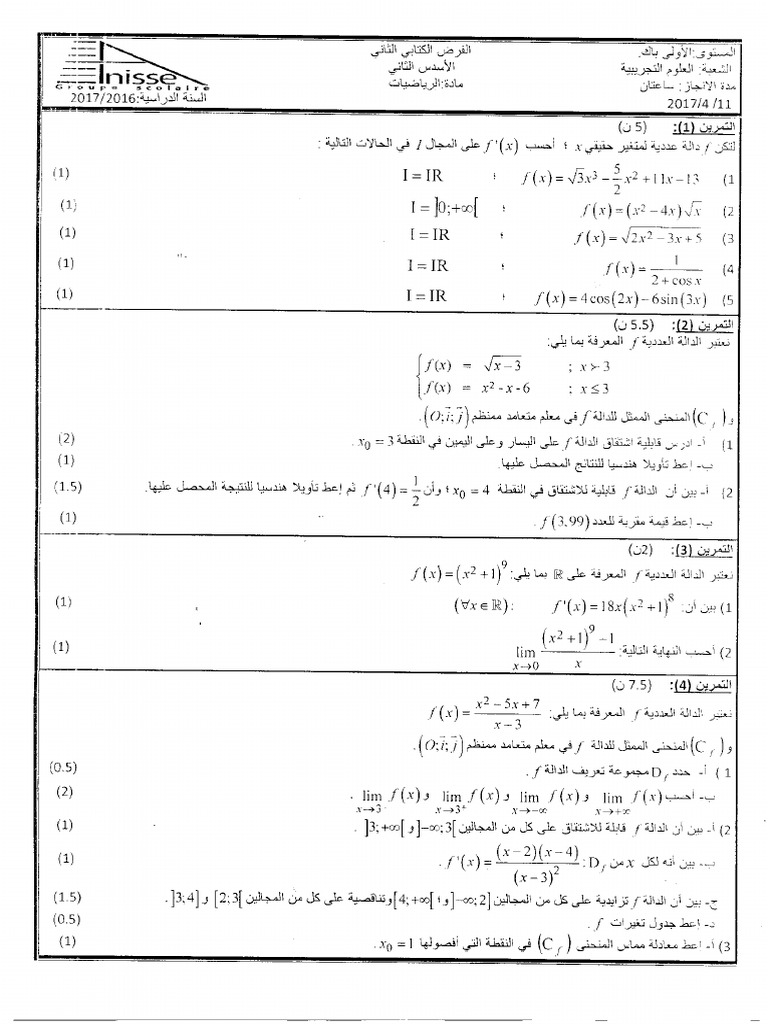 Inisse
Groupe Scolaire
السنة الدراسية:2017/2016
الفرض الكتابي الثاني
الأسدس الثاني
مادة:الرياضيات
المستوى:الأولى باك.
الشعبة: العلوم التجريبية
مدة الانجاز: ساعتان
2017/4 /11
التمرين (1): (5 ن)
لتكن f دالة عددية لمتغير حقيقي x ؛ أحسب f'(x) على المجال I في الحالات التالية :
1) f(x)=√3x³−5/2x²+11x−13 ؛ I = IR (1)
2) f(x)=(x²−4x)√x ؛ I = ]0;+∞[ (1)
3) f(x)=√(2x²−3x+5) ؛ I = IR (1)
4) f(x)=1/(2+cosx) ؛ I = IR (1)
5) f(x)=4cos(2x)−6sin(3x) ؛ I = IR (1)
التمرين (2): (5.5 ن)
نعتبر الدالة العددية f المعرفة بما يلي:
f(x) = √(x−3) ; x≻3
f(x) = x²-x-6 ; x≤3
و (C_f) المنحنى الممثل للدالة f في معلم متعامد ممنظم (O;i⃗;j⃗).
1) أ- ادرس قابلية اشتقاق الدالة f على اليسار وعلى اليمين في النقطة x₀=3 . (2)
ب- إعط تأويلا هندسيا للنتائج المحصل عليها. (1)
2) أ- بين أن الدالة f قابلية للاشتقاق في النقطة x₀=4 ؛ وأن f'(4)=1/2 ثم إعط تأويلا هندسيا للنتيجة المحصل عليها. (1.5)
ب- إعط قيمة مقربة للعدد f(3,99) . (1)
التمرين (3): (2ن)
نعتبر الدالة العددية f المعرفة على ℝ بما يلي: f(x)=(x²+1)⁹
1) بين أن: f'(x)=18x(x²+1)⁸ :(∀x∈ℝ) (1)
2) أحسب النهاية التالية: lim x→0 ((x²+1)⁹−1)/x (1)
التمرين (4): (7.5 ن)
نعتبر الدالة العددية f المعرفة بما يلي: f(x)=(x²−5x+7)/(x−3)
و (C_f) المنحنى الممثل للدالة f في معلم متعامد ممنظم (O;i⃗;j⃗).
1 ) أ- حدد D_f مجموعة تعريف الدالة f . (0.5)
ب- أحسب lim x→+∞ f(x) و lim x→−∞ f(x) و lim x→3⁺ f(x) و lim x→3 f(x) . (2)
2) أ- بين أن الدالة f قابلة للاشتقاق على كل من المجالين ]−∞;3[ و ]3;+∞[ . (1)
ب- بين أنه لكل x من D_f : f'(x)=(x−2)(x−4)/(x−3)² . (1)
ج- بين أن الدالة f تزايدية على كل من المجالين ]−∞;2] و؛ [4;+∞[ وتناقصية على كل من المجالين [2;3[ و ]3;4] . (1.5)
د- إعط جدول تغيرات f . (0.5)
3) أ- إعط معادلة مماس المنحنى (C_f) في النقطة التي أفصولها x₀=1 . (1)